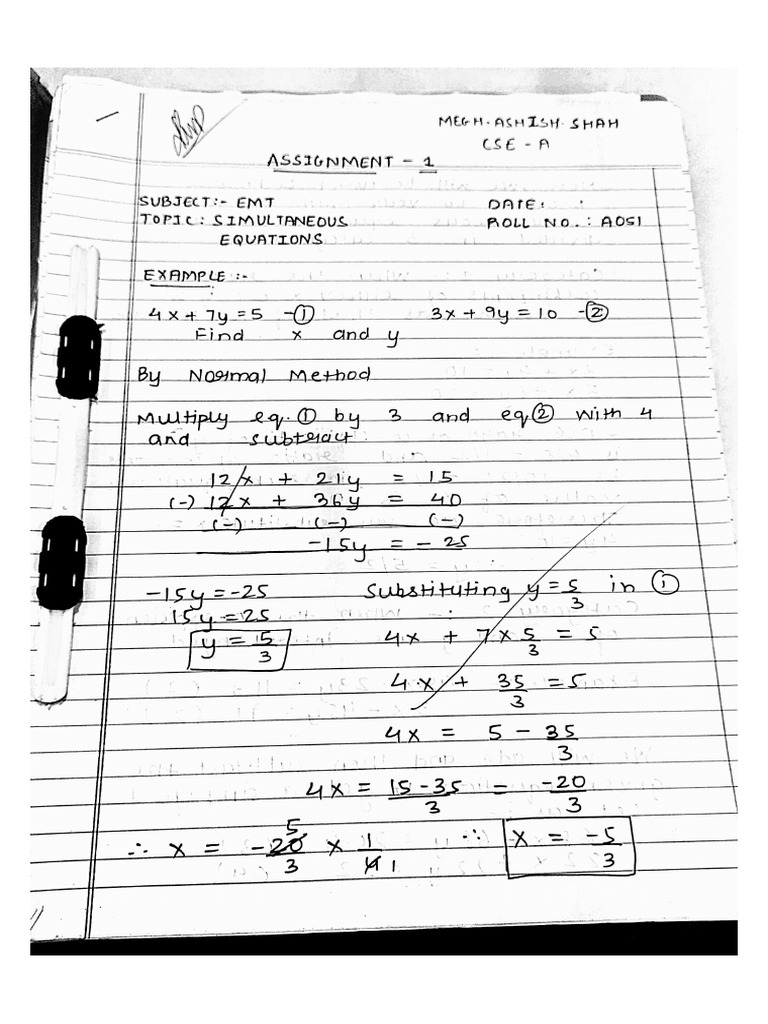 MEGH. ASHISH. SHAH
CSE - A
ASSIGNMENT - 1
SUBJECT:- EMT DATE: :
TOPIC: SIMULTANEOUS ROLL NO.: A051
EQUATIONS
EXAMPLE:-
4x + 7y = 5 -① 3x + 9y = 10 -②
Find x and y
By Normal Method
Multiply eq. ① by 3 and eq.② with 4
and subtract
12x + 21y = 15
(-) 12x + 36y = 40
(-) (-) (-)
-15y = - 25
-15y = -25 Substituting y = 5/3 in ①
15y = 25
y = 15/3
4x + 7 x 5/3 = 5
4x + 35/3 = 5
4x = 5 - 35/3
4x = 15 - 35/3 = -20/3
∴ x = -20/3 x 1/4 5 1 ∵ x = -5/3